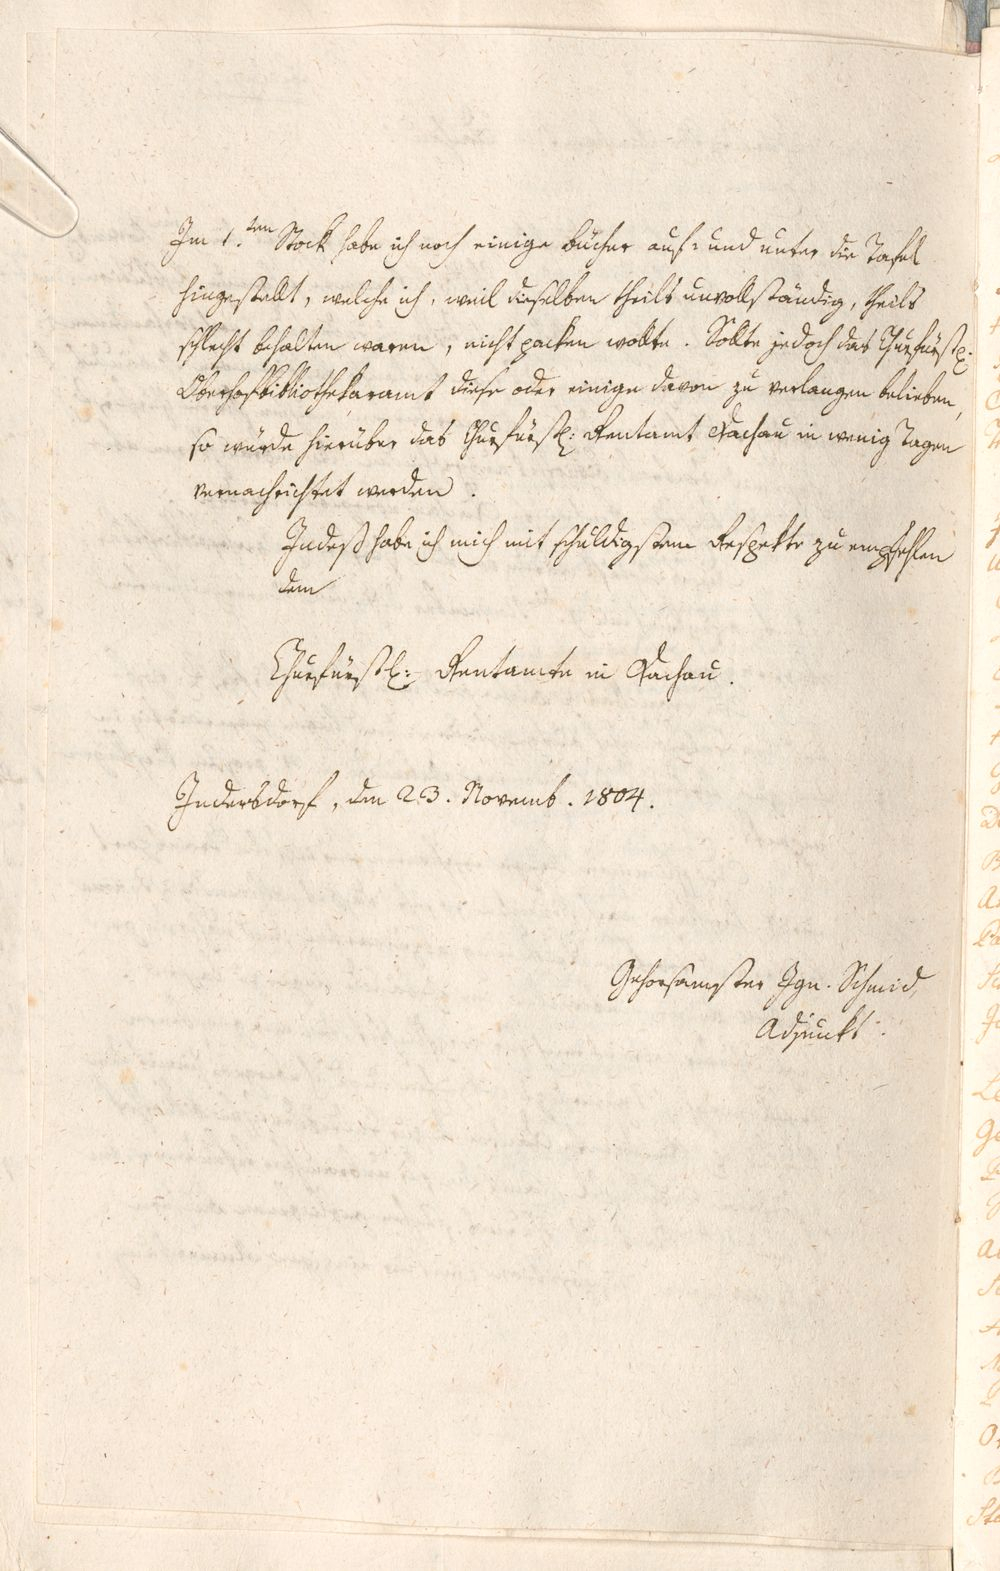 Im 1.ten Stock habe ich noch einige Bücher auf- und unter die Tafel
hingestellt, welche ich, weil dieselben theils unvollständig, theils
schlecht behalten waren, nicht packen wollte. Sollte jedoch das Churfürstl:
Oberhofbibliothekaramt diese oder einige davon zu verlangen belieben,
so würde hierüber das Churfürstl: Rentamt Dachau in wenig Tagen
vernachrichtet werden.
Indeß habe ich mich mit schuldigstem Respekte zu empfehlen
dem
Churfürstl: Rentamte in Dachau.
Indersdorf, den 23. Novemb. 1804.
Gehorsamster Ign. Schmid,
Adjunkt.